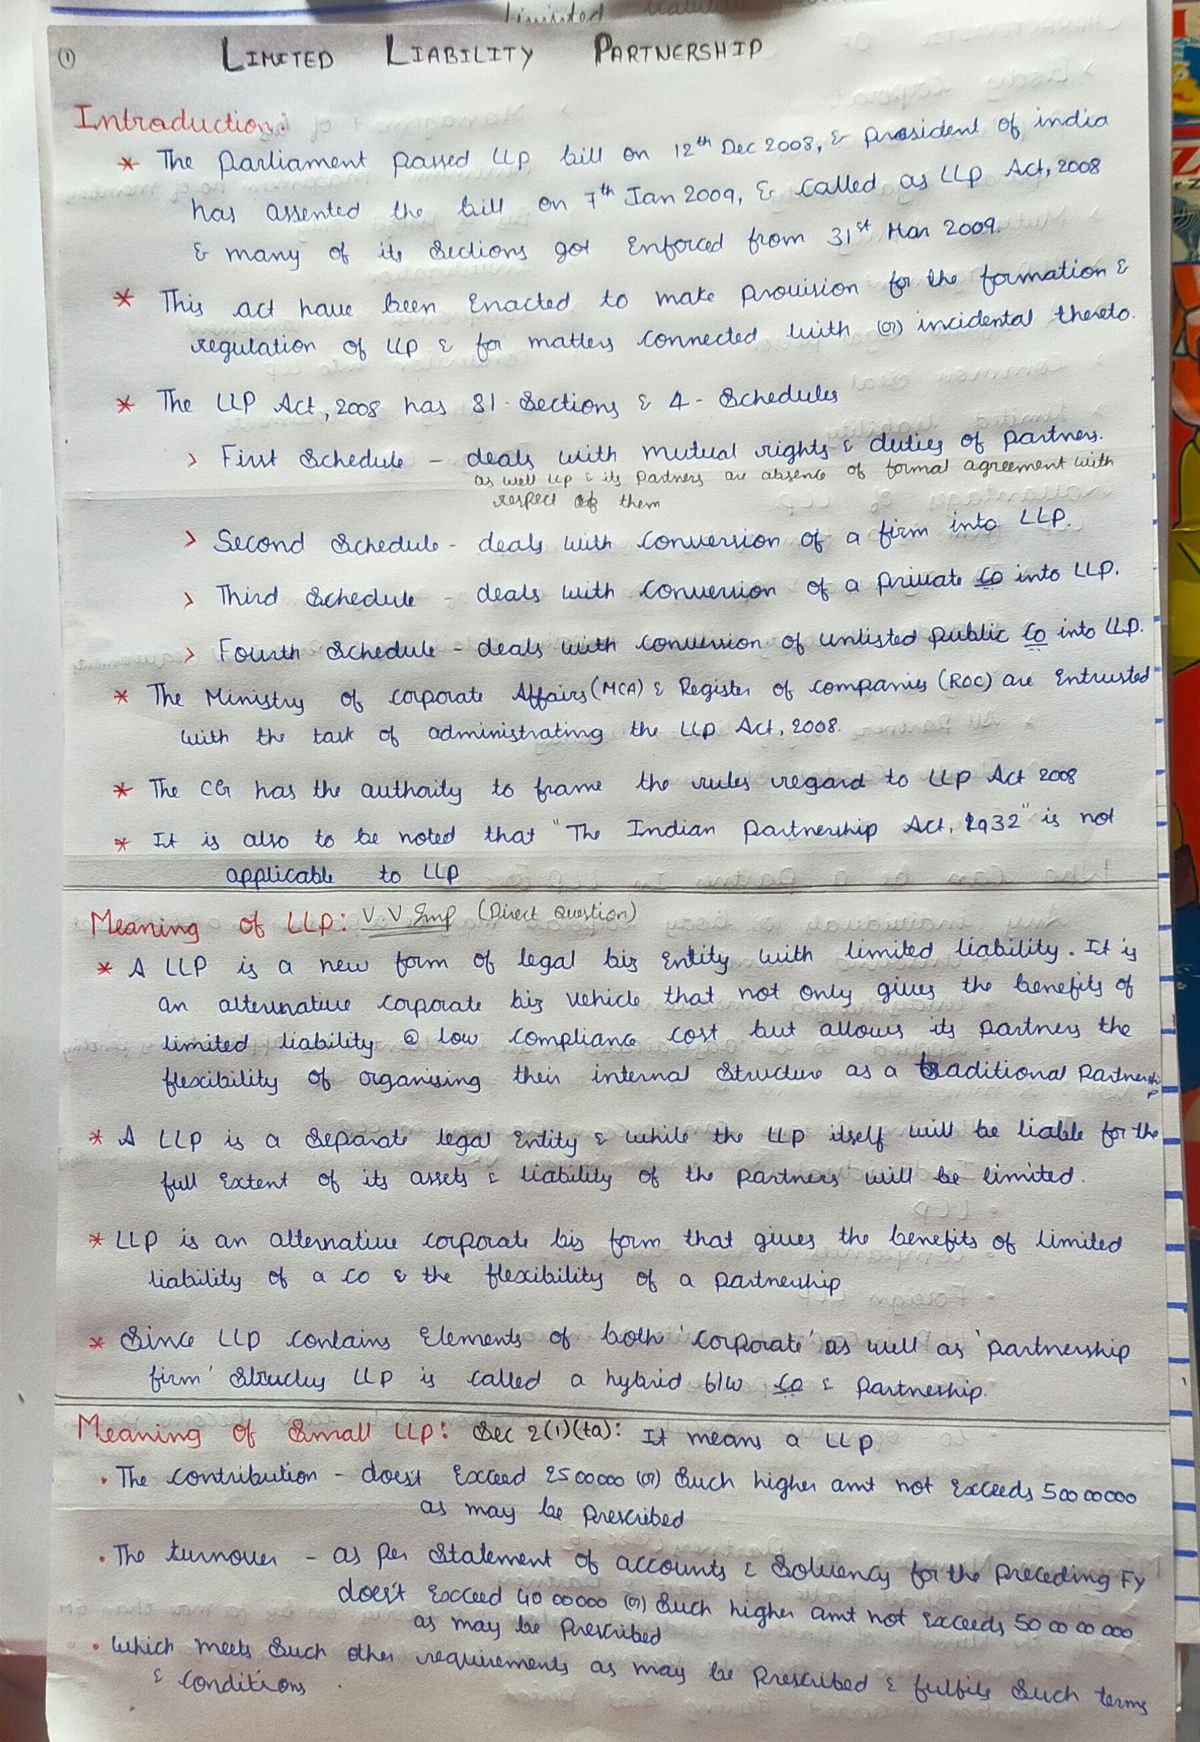 Limited Liability
(1)
LIMITED LIABILITY PARTNERSHIP
Introduction:
* The Parliament passed LLP bill on 12th Dec 2008, & president of india
has assented the bill on 7th Jan 2009, & called as LLP Act, 2008
& many of its Sections got Enforced from 31st Mar 2009.
* This act have been Enacted to make provision for the formation &
regulation of LLP & for matters connected with (or) incidental thereto.
* The LLP Act, 2008 has 81 - Sections & 4 - Schedules
> First Schedule - deals with mutual rights & duties of partners.
as well LLP & its Partners are absence of formal agreement with
respect of them
> Second Schedule - deals with conversion of a firm into LLP.
> Third Schedule - deals with conversion of a private Co into LLP.
> Fourth Schedule - deals with conversion of unlisted public Co into LLP.
* The Ministry of corporate Affairs (MCA) & Register of companies (ROC) are Entrusted
with the task of administrating the LLP Act, 2008.
* The CG has the authority to frame the rules regard to LLP Act 2008
* It is also to be noted that "The Indian Partnership Act, 1932" is not
applicable to LLP
Meaning of LLP: V.V Imp (Direct Question)
* A LLP is a new form of legal biz Entity with limited liability. It is
an alternative corporate biz vehicle that not only gives the benefits of
limited liability @ low compliance cost but allows its partners the
flexibility of organising their internal Structure as a traditional Partnership
* A LLP is a Separate legal Entity & while the LLP itself will be liable for the
full Extent of its assets & liability of the partners will be limited.
* LLP is an alternative corporate biz form that gives the benefits of limited
liability of a co & the flexibility of a partnership
* Since LLP contains Elements of both 'corporate' as well as 'partnership
firm' Structures LLP is called a hybrid b/w Co & Partnership.
Meaning of Small LLP: Sec 2(1)(ta): It means a LLP
• The contribution - does't Exceed 2500000 (or) Such higher amt not Exceeds 50000000
as may be Prescribed
• The turnover - as per Statement of accounts & Solvency for the Preceding FY
does't Exceed 40 00000 (or) Such higher amt not Exceeds 50 00 00 000
as may be Prescribed
• Which meets Such other requirements as may be Prescribed & fulfils Such terms
& conditions.